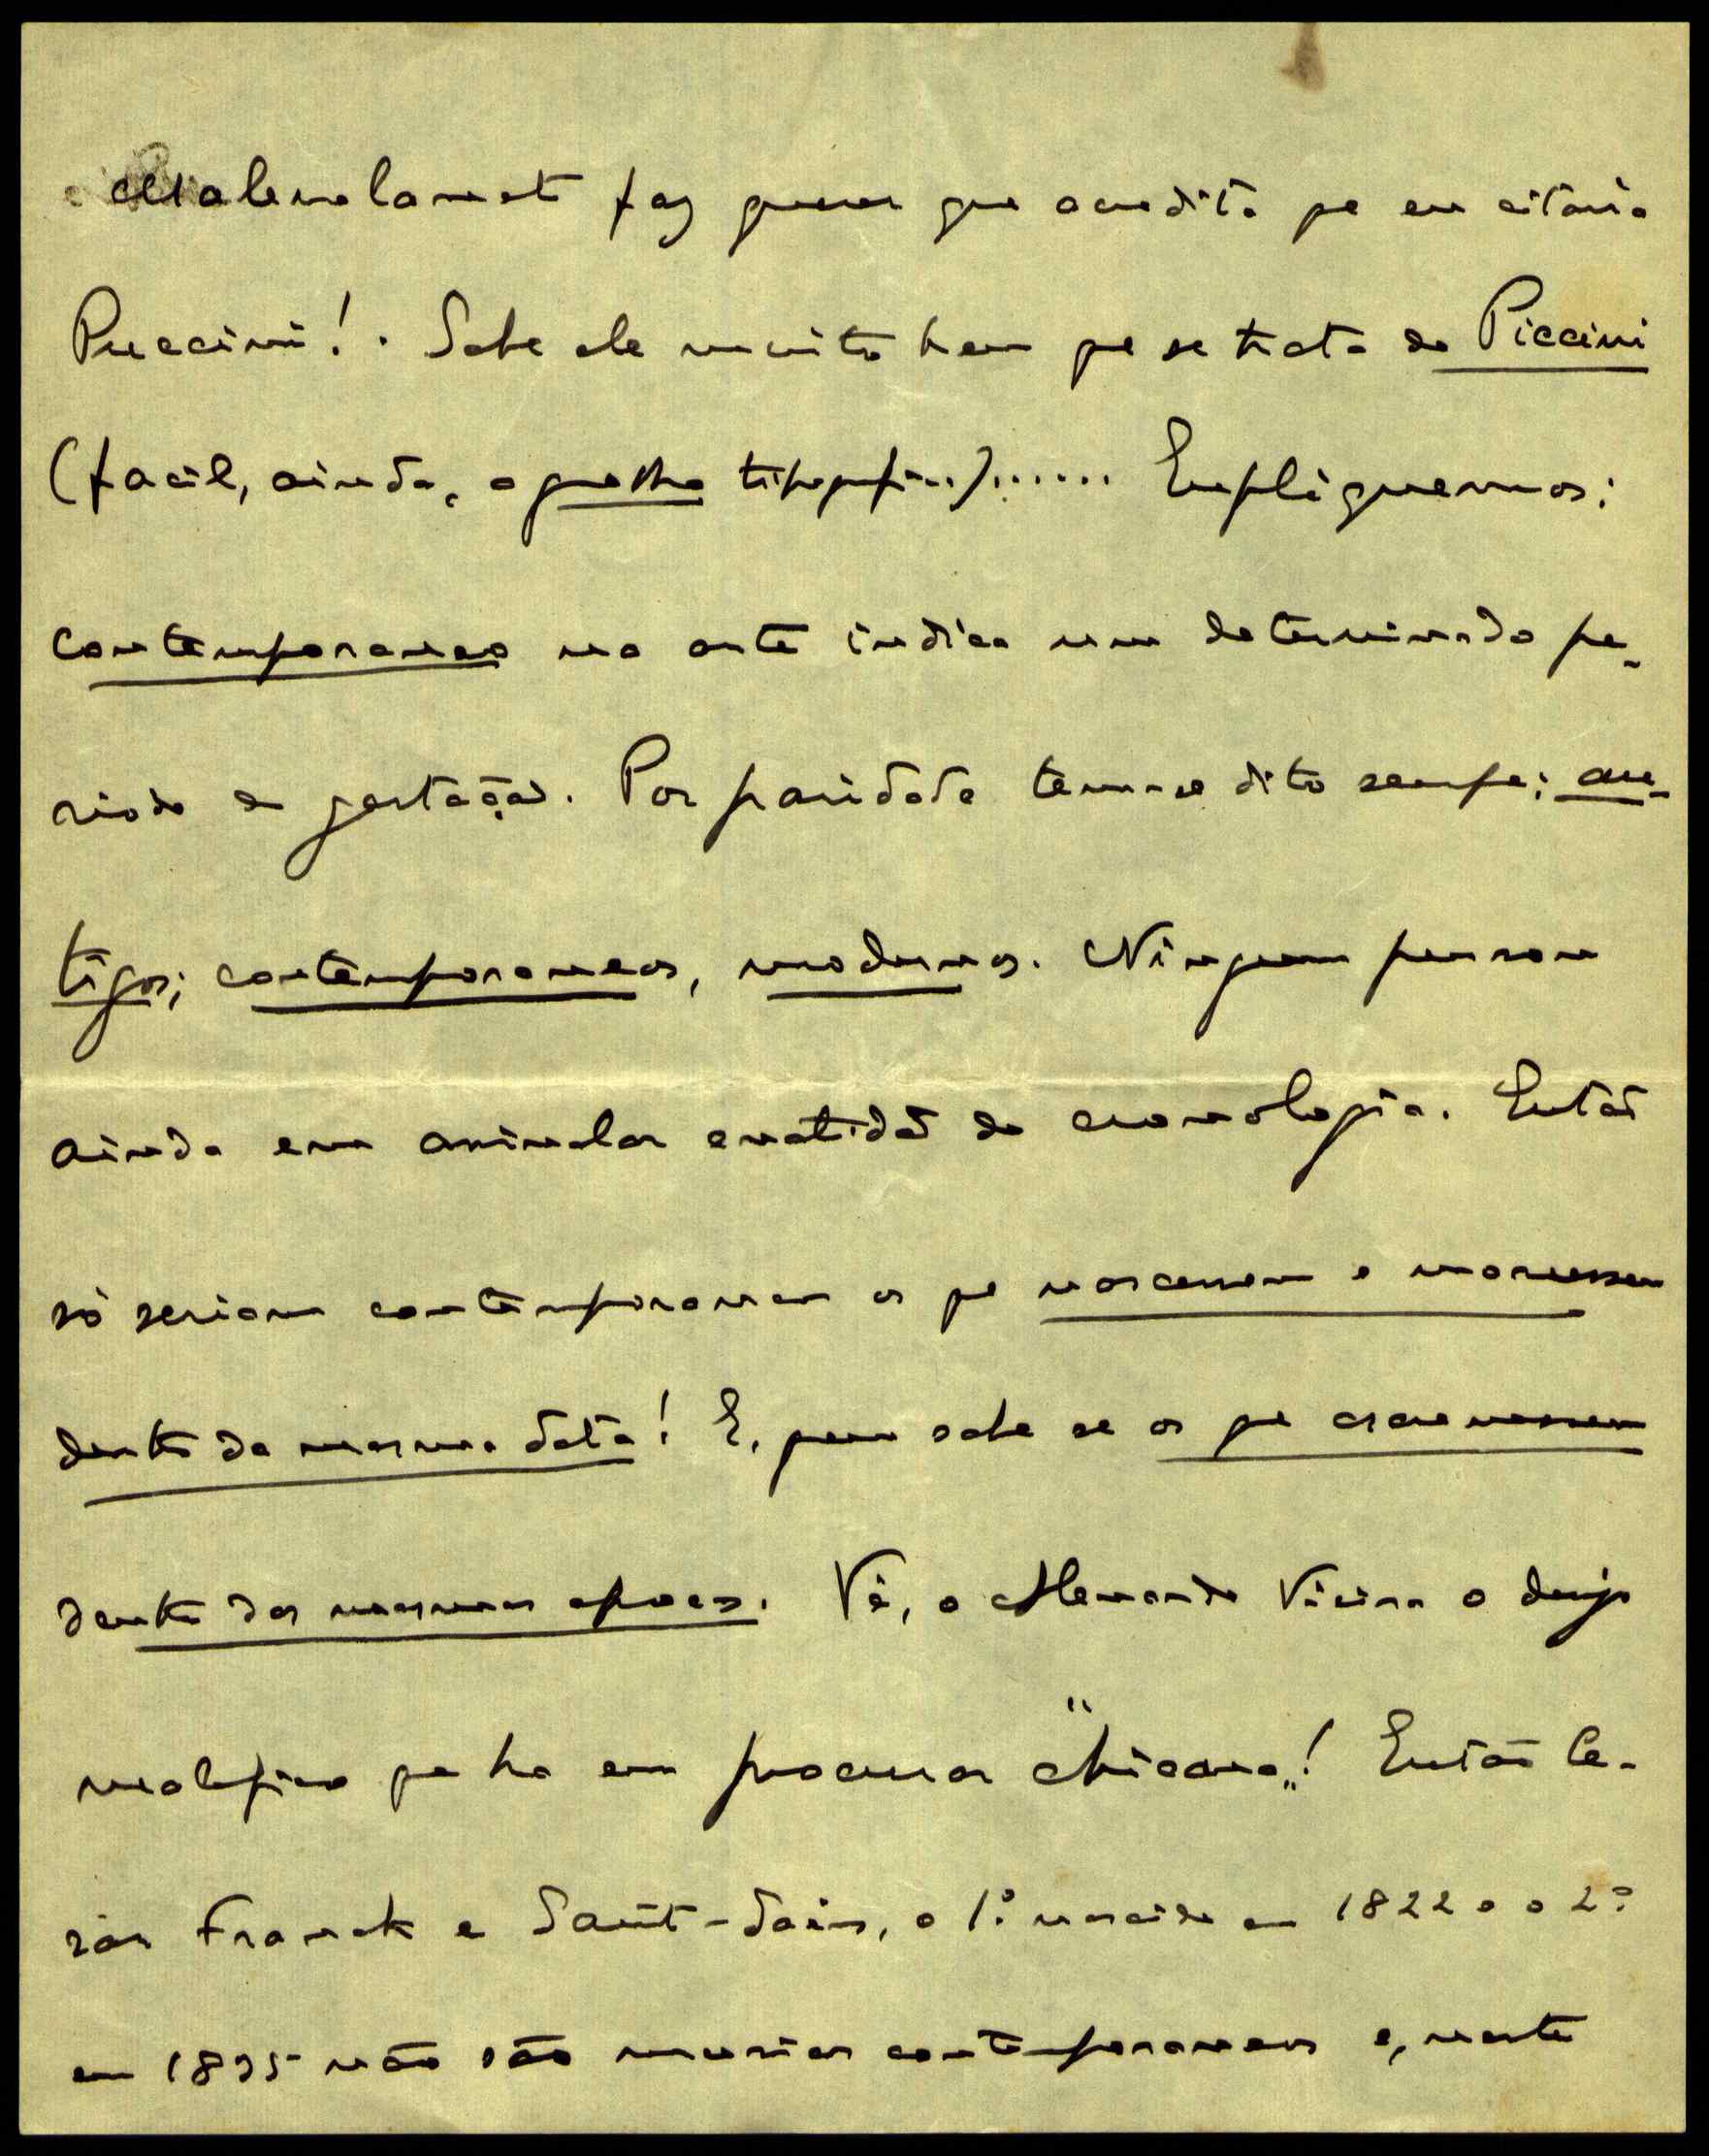 Malevolamente faz querer que acredita que eu citaria
Puccini! Sabe ele muito bem que se trata de Piccini
(facil, ainda, o gralha tipografica)...... Expliquemos:
contemporaneo na arte indica um determinado pe-
riodo de gestação. Por paridade tem-se dito sempre: an-
tigos; contemporaneos, modernos. Ninguem pensou
ainda em assinalar exatidão de cronologia. Então
só seriam contemporaneos os que nascessem e morressem
dentro da mesma data! E, quem sabe se os que escrevessem
dentro das mesmas epocas. Vê, o Alemando Vieira o desejo
malefico que ha em procurar "chicana"! Então Ce-
sar Franck e Saint-Saëns, o 1º nascido em 1822 e o 2º
em 1835 não são musicos contemporaneos e, neste